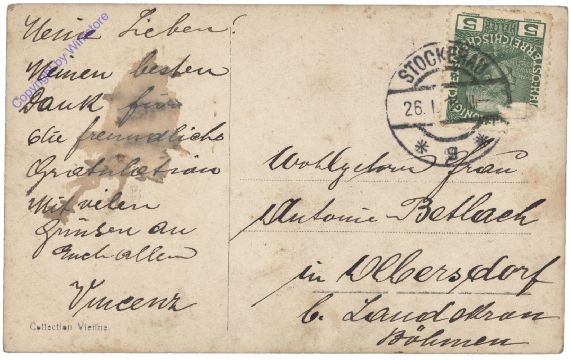 Meine Lieben!
Meinen besten
Dank für
die freundliche
Gratulation
Mit vielen
Grüsen an
Euch allen
Vincenz
Collection Vienne
Copyright by
STOCKERAU
26. I.
* g *
5 5
Wohlgeborn Frau
Antonie Betlach
in Olbersdorf
b. Landskron
Böhmen